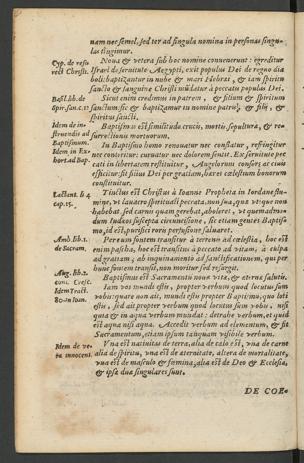 nam nec semel, sed ter ad singula nomina in personas singu-
las tingimur.
Cyp. de resu
rect Christi.
Noua & vetera sub hoc nomine conuenerunt: egreditur
Israel de seruitute Aegypti, exit populus Dei de regno dia
boli: baptizantur in nube & mari Hebræi, & iam spiritu
sancto & sanguine Christi mūdatur à peccatis populus Dei.
Basil. lib. de
Spir. san. c. 12
Sicut enim credimus in patrem, & filium & spiritum
sanctum: sic & baptizamur in nomine patris, & filij, &
spiritus sancti.
Idem de in-
struendis ad
Baptismum.
Idem in Ex-
hort. ad Bap.
Baptismus est similitudo crucis, mortis, sepulturæ, & re-
surrectionis mortuorum.
In Baptismo homo renouatur nec conflatur, refringitur
nec conteritur: curatur nec dolorem sentit. Ex seruitute pec
cati in libertatem restituitur, Angelorum consors ac ciuis
efficitur: sit filius Dei per gratiam, hæres cælestium bonorum
constituitur.
Lactant. li 4
cap. 15.
Tinctus est Christus à Ioanne Propheta in Iordane flu-
mine, vt lauacro spirituali peccata, non sua, quæ vtique non
habebat, sed carnis quam gerebat, aboleret, vt quemadmo-
dum Iudæos suscepta circuncisione, sic etiam gentes Baptis-
mo, id est, purifici roris perfusione saluaret.
Amb. lib. 1.
de Sacram.
Per eum fontem transitur à terrenis ad cælestia, hoc est
enim pascha, hoc est transitus à peccato ad vitam, à culpa
ad gratiam, ab inquinamento ad sanctificationem, qui per
hunc fontem transit, non moritur sed resurgit.
Aug. lib. 2.
cont. Cresc.
Idem Tract.
80. in Ioan.
Baptismus est Sacramentū nouæ vitæ, & æternæ salutis.
Iam vos mundi estis, propter verbum quod locutus sum
vobis: quare non ait, mundi estis propter Baptismū, quo loti
estis, sed ait propter verbum quod locutus sum vobis, nisi
quia & in aqua verbum mundat: detrahe verbum, et quid
est aqua nisi aqua. Accedit verbum ad elementum, & fit
Sacramentum, etiam ipsum tanquam visibile verbum.
Idem de ve-
ra innocent.
Vna est natiuitas de terra, alia de cælo est, vna de carne
alia de spiritu, vna est de æternitate, altera de mortalitate,
vna est de masculo & fœmina, alia est de Deo & Ecclesia,
& ipsæ duæ singulares sunt.
DE COR-